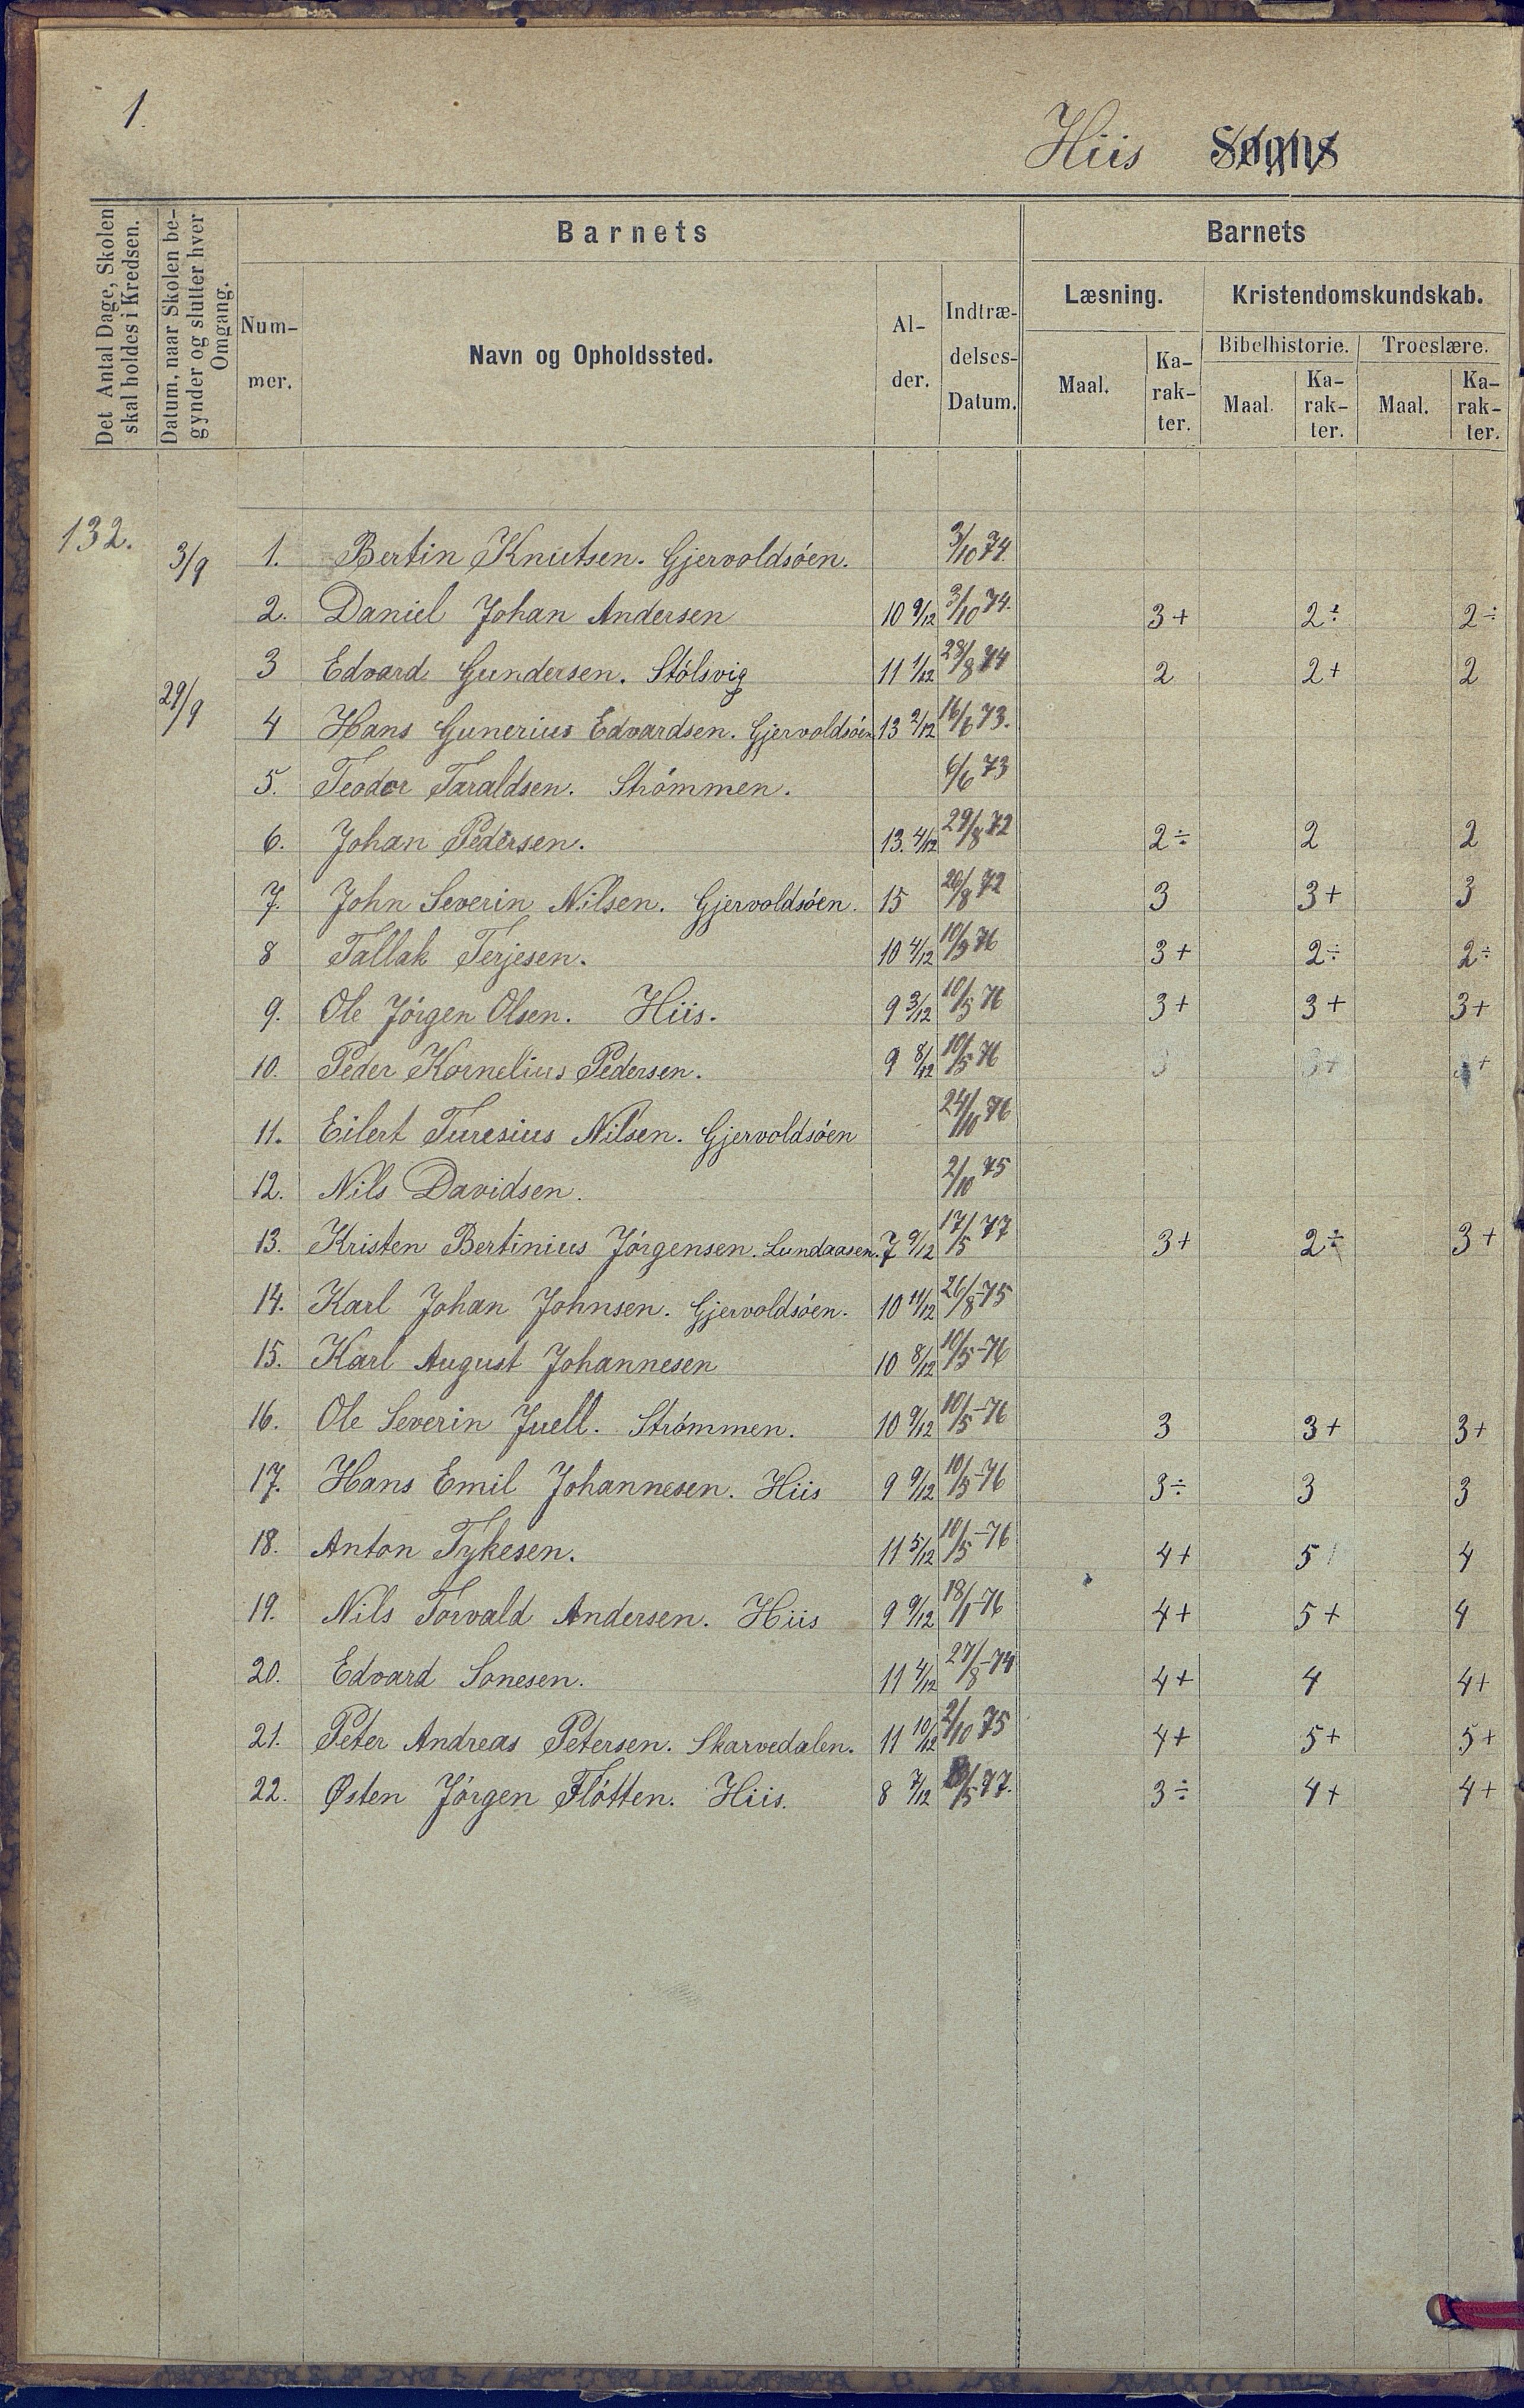 1.
Hiis Sogns
Det Antal Dage, Skolen skal holdes i Kredsen.
Datum, naar Skolen begynder og slutter hver Omgang.
Barnets
Barnets
Nummer.
Navn og Opholdssted.
Alder.
Indtrædelses-Datum.
Læsning.
Kristendomskundskab.
Bibelhistorie.
Troeslære.
Maal.
Karakter.
Maal.
Karakter.
Maal.
Karakter.
132.
3/9
29/9
1. Bertin Knutsen. Gjervoldsöen. 3/10 74.
2. Daniel Johan Andersen 10 9/12 3/10 74. 3+ 2÷ 2÷
3 Edvard Gundersen. Stölsvig 11 1/12 28/8 74 2 2+ 2
4 Hans Gunerius Edvardsen. Gjervoldsöen 13 2/12 16/6 73.
5. Teodor Taraldsen. Strömmen. 6/6 73
6. Johan Pedersen. 13. 4/12 29/8 72 2÷ 2 2
7. John Severin Nilsen. Gjervoldsöen. 15 20/8 72 3 3+ 3
8 Tallak Terjesen. 10 4/12 76 3+ 2÷ 2÷
9. Ole Jörgen Olsen. Hiis. 9 3/12 10/5 76 3+ 3+ 3+
10. Peder Kornelius Pedersen. 9 8/12 10/5 76 3 3+ 3+
11. Eilert Turesius Nilsen. Gjervoldsöen 24/10 76
12. Nils Davidsen. 2/10 75
13. Kristen Bertinius Jörgensen. Lundaasen. 7 9/12 17/5 77 3+ 2÷ 3+
14. Karl Johan Johnsen. Gjervoldsöen. 10 11/12 26/8-75
15. Karl August Johannesen 10 8/12 10/5-76
16. Ole Severin Juell. Strömmen. 10 9/12 10/5-76 3 3+ 3+
17. Hans Emil Johannesen. Hiis 9 9/12 10/5-76 3÷ 3 3
18. Anton Tykesen. 11 5/12 10/5-76 4+ 5 4
19. Nils Torvald Andersen. Hiis 9 9/12 18/1-76 4+ 5+ 4
20. Edvard Sonesen. 11 4/12 27/8-74 4+ 4 4+
21. Peter Andreas Petersen. Skarvedalen. 11 10/12 2/10 75 4+ 5+ 5+
22. Østen Jörgen Flötten. Hiis. 8 7/12 77. 3÷ 4+ 4+